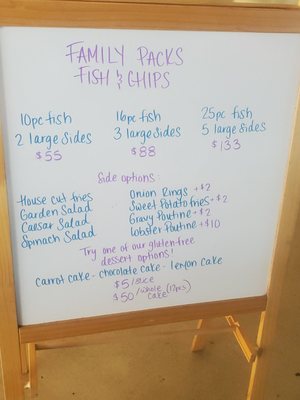 FAMILY PACKS
FISH & CHIPS
10pc fish
2 large sides
$55
16pc fish
3 large sides
$88
25pc fish
5 large sides
$133
Side options:
House cut fries
Garden Salad
Caesar Salad
Spinach Salad
Onion Rings +$2
Sweet Potato fries +$2
Gravy Poutine +$2
Lobster Poutine +$10
Try one of our gluten-free
dessert options!
carrot cake - chocolate cake - lemon cake
$5/slice
$50/whole cake (12pcs)